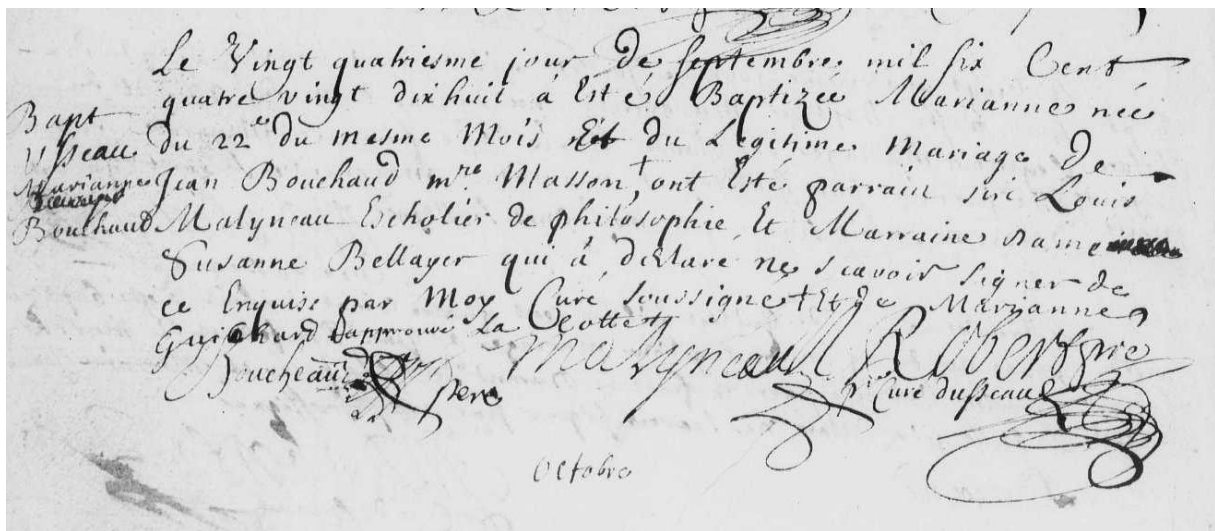 Le Vingt quatriesme jour de septembre mil six Cent
quatre vingt dixhuit à Esté Baptizée Marianne née
du 22e du mesme Mois Et du Legitime Mariage de
Jean Bouchaud mre Masson † ont Esté parrain sire Louis
Malyneau Escholier de philosophie Et Marraine dame
Susanne Bellayer qui à déclaré ne scavoir signer de
ce Enquise par Moy Curé soussigné † Et de Marianne
Guichard approuvé La Cotte †
Bapt
Usseau
Marianne
Bouchaud
Boucheau père
Malyneau
Robert pre
Curé dusseau
Octobre